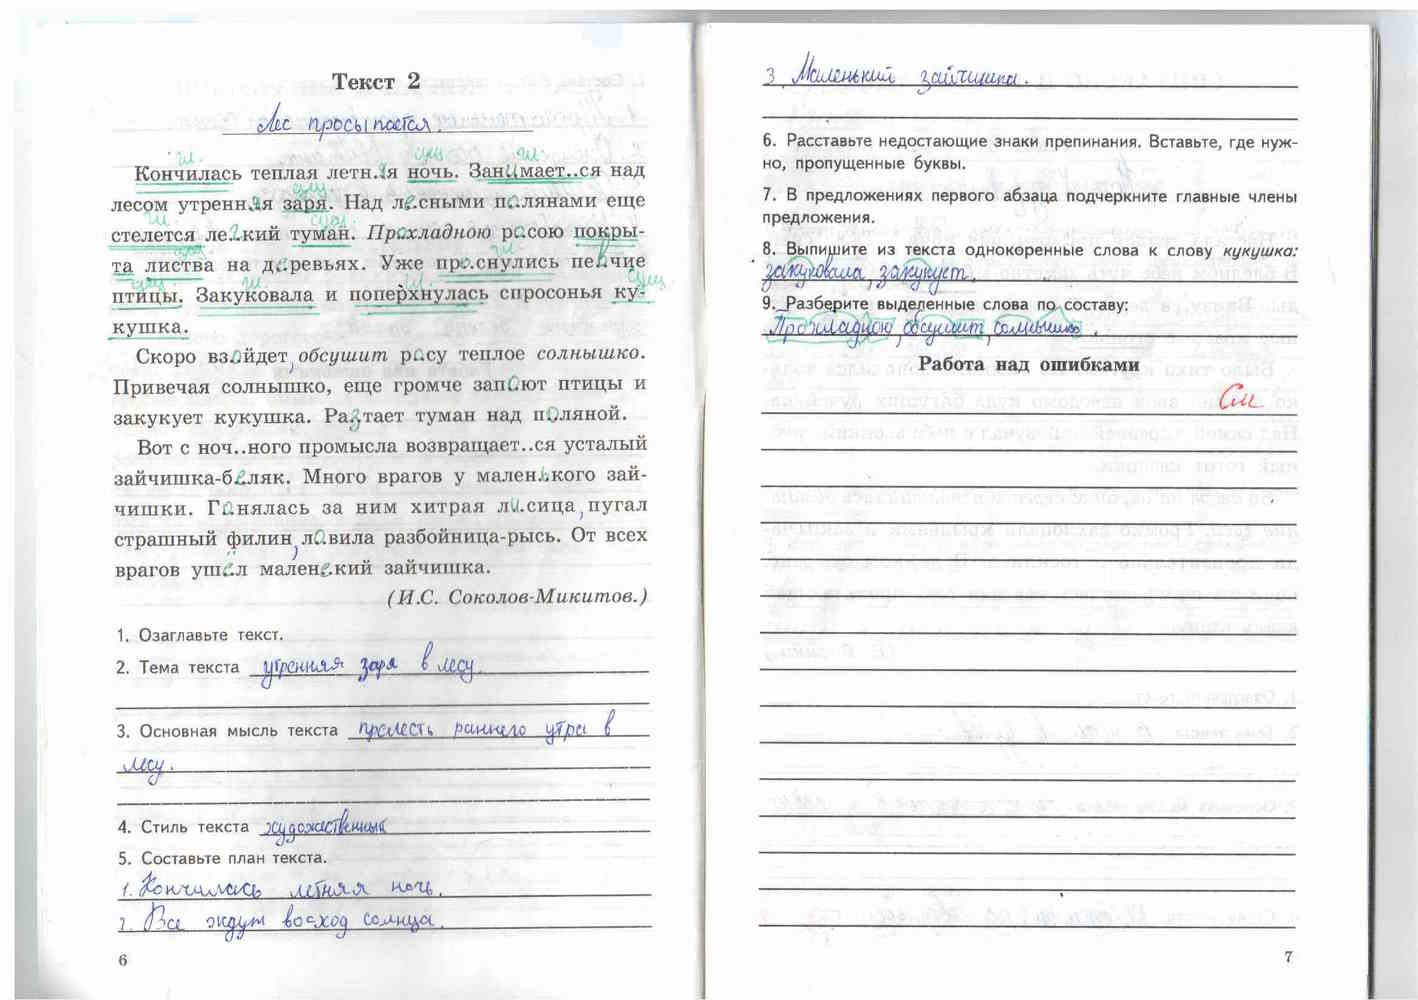 Текст 2
Лес просыпается.
гл. сущ гл.
Кончилась теплая летняя ночь. Занимает..ся над
сущ.
лесом утренняя заря. Над лесными полянами еще
гл. сущ.
стелется легкий туман. Прохладною росою покры-
сущ. гл.
та листва на деревьях. Уже проснулись певчие
сущ. гл. гл. сущ.
птицы. Закуковала и поперхнулась спросонья ку-
кушка.
Скоро взойдет, обсушит росу теплое солнышко.
Привечая солнышко, еще громче запоют птицы и
закукует кукушка. Растает туман над поляной.
Вот с ноч..ного промысла возвращает..ся усталый
зайчишка-беляк. Много врагов у маленького зай-
чишки. Гонялась за ним хитрая лисица, пугал
страшный филин, ловила разбойница-рысь. От всех
врагов ушёл маленький зайчишка.
(И.С. Соколов-Микитов.)
1. Озаглавьте текст.
2. Тема текста утренняя заря в лесу.
3. Основная мысль текста прелесть раннего утра в
лесу.
4. Стиль текста художественный
5. Составьте план текста.
1. Кончилась летняя ночь.
2. Все ждут восход солнца.
6
3. Маленький зайчишка.
6. Расставьте недостающие знаки препинания. Вставьте, где нуж-
но, пропущенные буквы.
7. В предложениях первого абзаца подчеркните главные члены
предложения.
8. Выпишите из текста однокоренные слова к слову кукушка:
закуковала, закукует.
9. Разберите выделенные слова по составу:
Прохладною, обсушит, солнышко.
Работа над ошибками
См
7